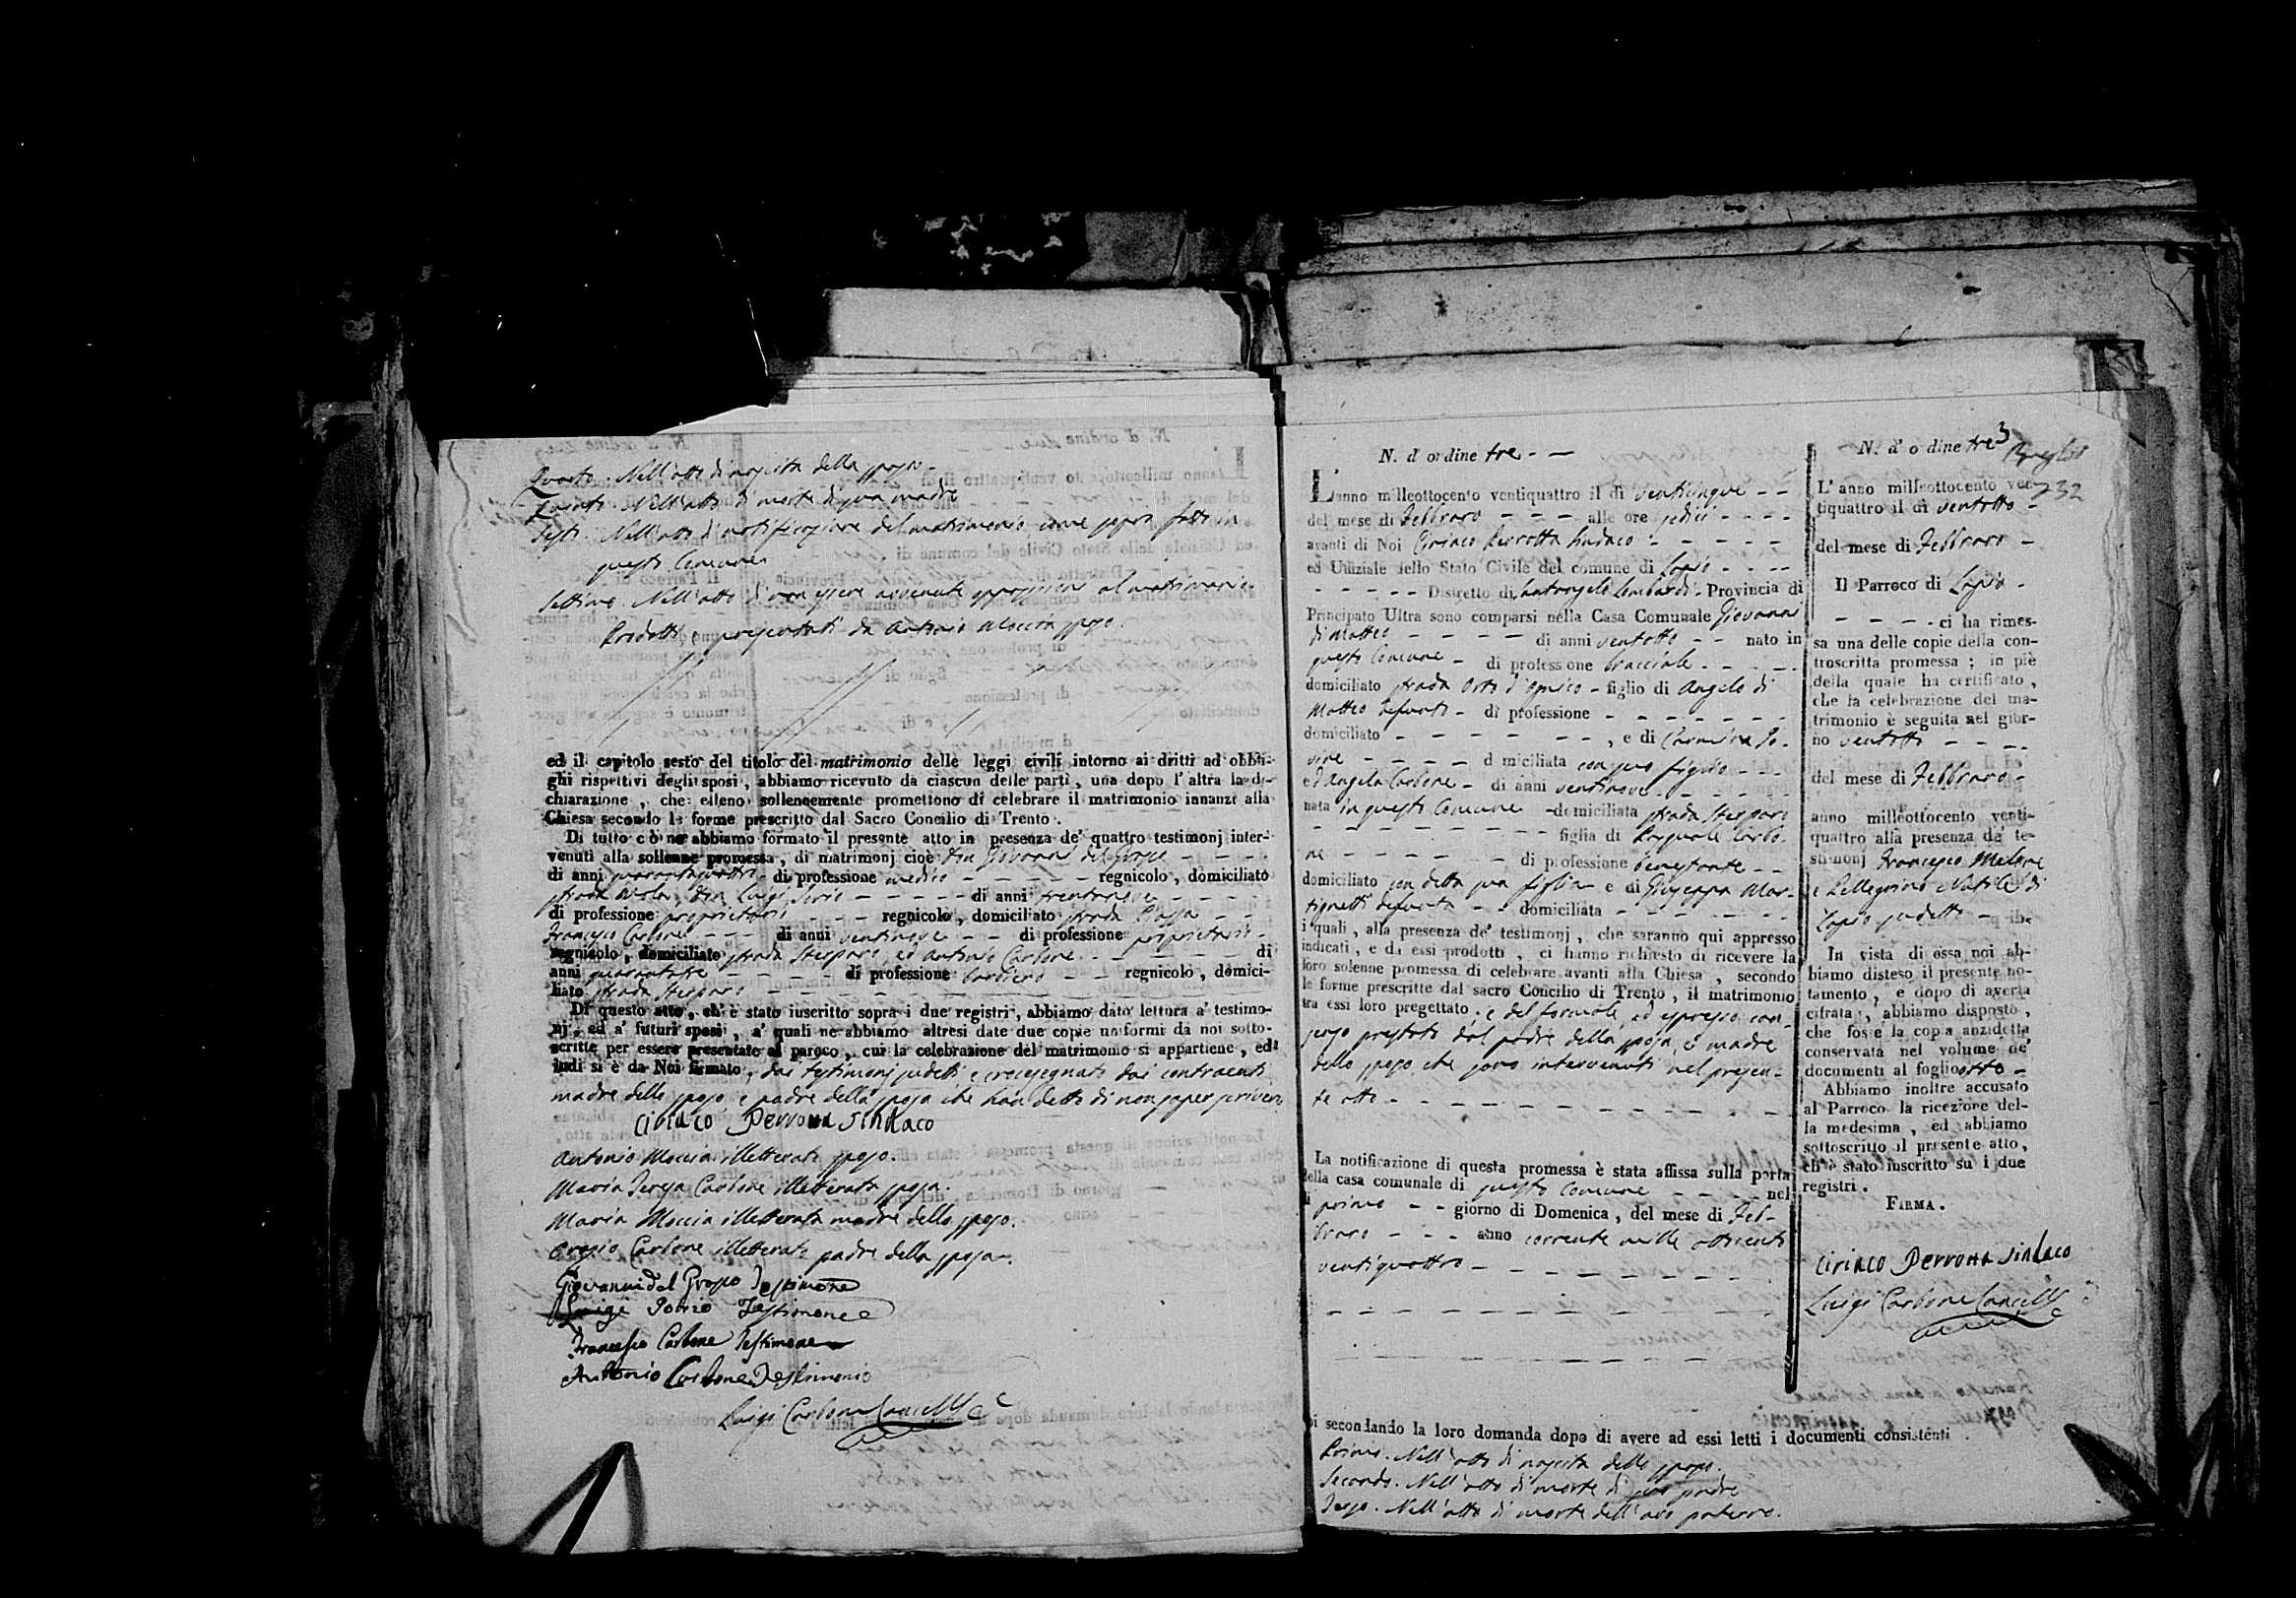 Quarto. Nell'atto di nascita della sposa.
Quinto. Nell'atto di morte di sua madre
Sesto. Nell'atto di notificazione del matrimonio come sopra fatto in
questo Comune.
Settimo. Nell'atto di non essere avvenute opposizioni al matrimonio.
Prodotti, e presentati da Antonio Moccia sposo.
ed il capitolo sesto del titolo del matrimonio delle leggi civili intorno ai dritti ad obbli-
ghi rispettivi degli sposi, abbiamo ricevuto da ciascun delle parti, una dopo l'altra la di-
chiarazione, che elleno sollennemente promettono di celebrare il matrimonio innanzi alla
Chiesa secondo le forme prescritto dal Sacro Concilio di Trento.
Di tutto ciò ne abbiamo formato il presente atto in presenza de' quattro testimonj inter-
venuti alla sollenne promessa, di matrimonj cioè Don Giovanni del Grosso - - - -
di anni quarantaquattro - di professione medico - - - - - regnicolo, domiciliato
strada Don Luigi - - - - - di anni trentanove - - - -
di professione proprietario - - - regnicolo, domiciliato strada Piazza - -
Francesco Carbone - - - di anni ventinove - - di professione proprietario -
regnicolo, domiciliato strada Sterparo, ed Antonio Carbone - - - - - - di
anni - - - - - di professione barbiero - - - regnicolo, domici-
liato strada Sterparo - - - - - -
Di questo atto, ch'è stato iuscritto sopra i due registri, abbiamo dato lettura a' testimo-
nj, ed a' futuri sposi, a' quali ne abbiamo altresi date due copie uniformi da noi sotto-
scritte per essere presentato al paroco, cui la celebrazione del matrimonio si appartiene, ed
indi si è da Noi firmato, dai testimonj sudetti, e crocesegnato dai contraenti
madre dello sposo, e padre della sposa che han detto di non saper scrivere
Ciriaco Perrotta Sindaco
Antonio Moccia illetterato sposo.
Maria Teresa Carbone illetterata sposa.
Maria Moccia illetterata madre dello sposo.
Orazio Carbone illetterato padre della sposa.
Giovanni del Grosso Testimone
Luigi Testimone
Francesco Carbone Testimone
Antonio Carbone Testimonio
Luigi Carbone Cancelle
N. d'ordine tre - -
L'anno milleottocento ventiquattro il dì venticinque - -
del mese di Febbraro - - - alle ore sedici - - - -
avanti di Noi Ciriaco Perrotta Sindaco - - - - - -
ed Uffiziale dello Stato Civile del comune di Lapio - - - -
- - - - - Distretto di Santangelo Lombardi - Provincia di
Principato Ultra sono comparsi nella Casa Comunale Giovanni
di Matteo - - - - di anni ventotto - - nato in
questo Comune - di professone bracciale - - - -
domiciliato strada Orto d'Enrico - figlio di Angelo di
Matteo defunto - di professione - - - - - - -
domiciliato - - - - - - -, e di Carmina Jo-
vine - - - - - d miciliata con suo figlio - - -
ed Angela Carbone - di anni ventinove - - - - -
nata in questo Comune - domiciliata strada Sterparo
- - - - - - - - - figlia di Pasquale Carbo-
ne - - - - - - - di professione benestante - -
domiciliato con detta sua figlia - e di Giuseppa Mar-
tignetti defunta - - domiciliata - - - - - - -
i quali, alla presenza de' testimonj, che saranno qui appresso
indicati, e da essi prodotti, ci hanno richiesto di ricevere la
loro solenne promessa di celebrare avanti alla Chiesa, secondo
le forme prescritte dal sacro Concilio di Trento, il matrimonio
tra essi loro pregettato. e del formale, ed espresso con-
senso prestato dal padre della sposa, e madre
dello sposo che sono intervenuti nel presen-
te atto - - - - - - - - - - - -
La notificazione di questa promessa è stata affissa sulla porta
della casa comunale di questo Comune - - - - - nel
dì primo - - giorno di Domenica, del mese di Feb-
braro - - - anno corrente mille ottocento
ventiquattro - - - - - - - - -
oi secondando la loro domanda dopo di avere ad essi letti i documenti consistenti
Primo. Nell'atto di nascita dello sposo.
Secondo. Nell'atto di morte di suo padre
Terzo. Nell'atto di morte dell'avo paterno.
N. d'o dine tre 3
732
L'anno milleottocento ven-
tiquattro il dì ventotto -
del mese di Febbraro -
Il Parroco di Lapio -
- - - - ci ha rimes-
sa una delle copie della con-
troscritta promessa; in piè
della quale ha certificato,
che la celebrazione del ma-
trimonio è seguita nel gior-
no ventotto - - - -
del mese di Febbraro -
anno milleottocento venti-
quattro alla presenza de' te-
stimonj Francesco Melone
e Pellegrino Natile di
Lapio sudetto -
In vista di essa noi ab-
biamo disteso il presente no-
tamento, e dopo di averla
cifrata, abbiamo disposto,
che foss'e la copia anzidetta
conservata nel volume de'
documenti al foglio otto -
Abbiamo inoltre accusato
al Parroco la ricezione del-
la medesima, ed abbiamo
sottoscritto il presente atto,
ch'è stato inscritto su i due
registri.
FIRMA.
Ciriaco Perrotta Sindaco
Luigi Carbone Cancelle